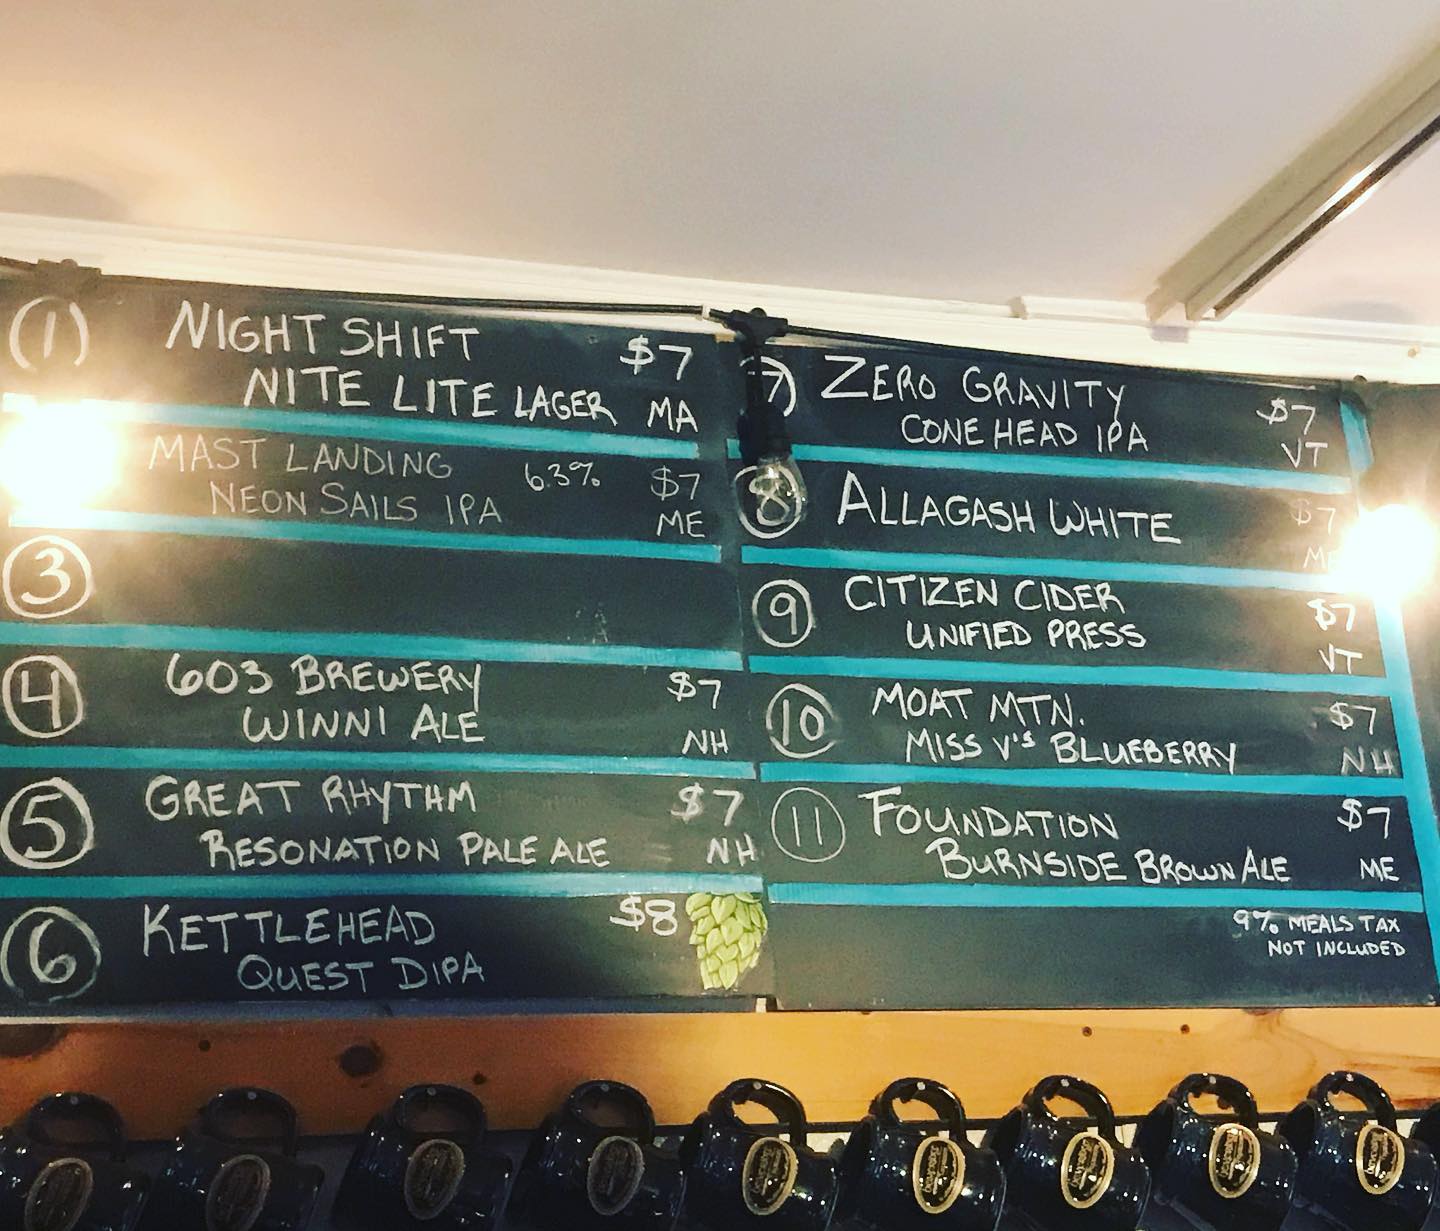 1 NIGHT SHIFT $7
NITE LITE LAGER MA
MAST LANDING 6.3% $7
NEON SAILS IPA ME
3
4 603 BREWERY $7
WINNI ALE NH
5 GREAT RHYTHM $7
RESONATION PALE ALE NH
6 KETTLEHEAD $8
QUEST DIPA
7 ZERO GRAVITY $7
CONE HEAD IPA VT
8 ALLAGASH WHITE $7
ME
9 CITIZEN CIDER $7
UNIFIED PRESS VT
10 MOAT MTN. $7
MISS V'S BLUEBERRY NH
11 FOUNDATION $7
BURNSIDE BROWN ALE ME
9% MEALS TAX
NOT INCLUDED